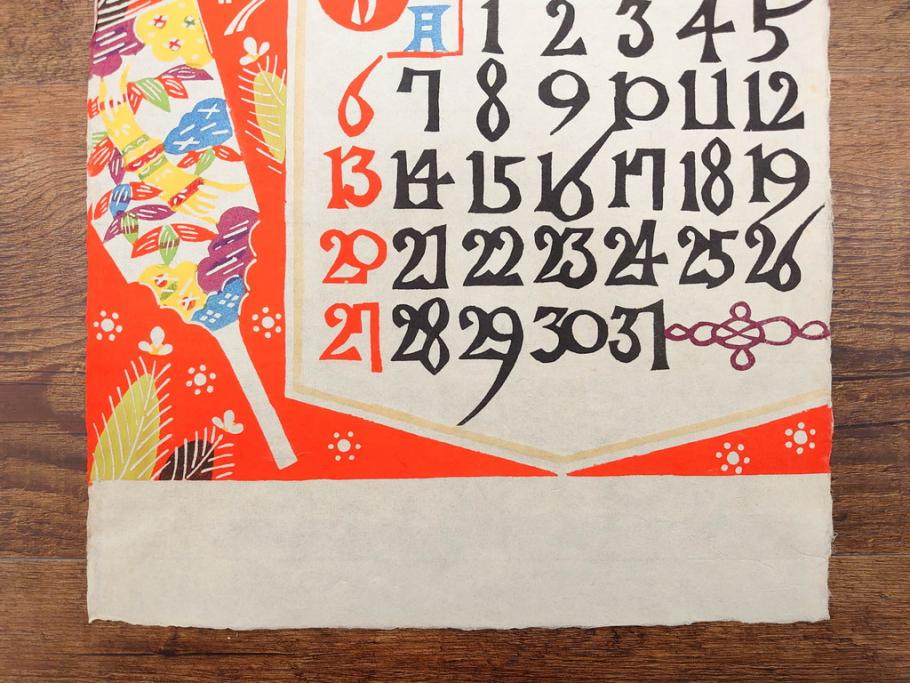 月 1 2 3 4 5
6 7 8 9 10 11 12
13 14 15 16 17 18 19
20 21 22 23 24 25 26
27 28 29 30 31